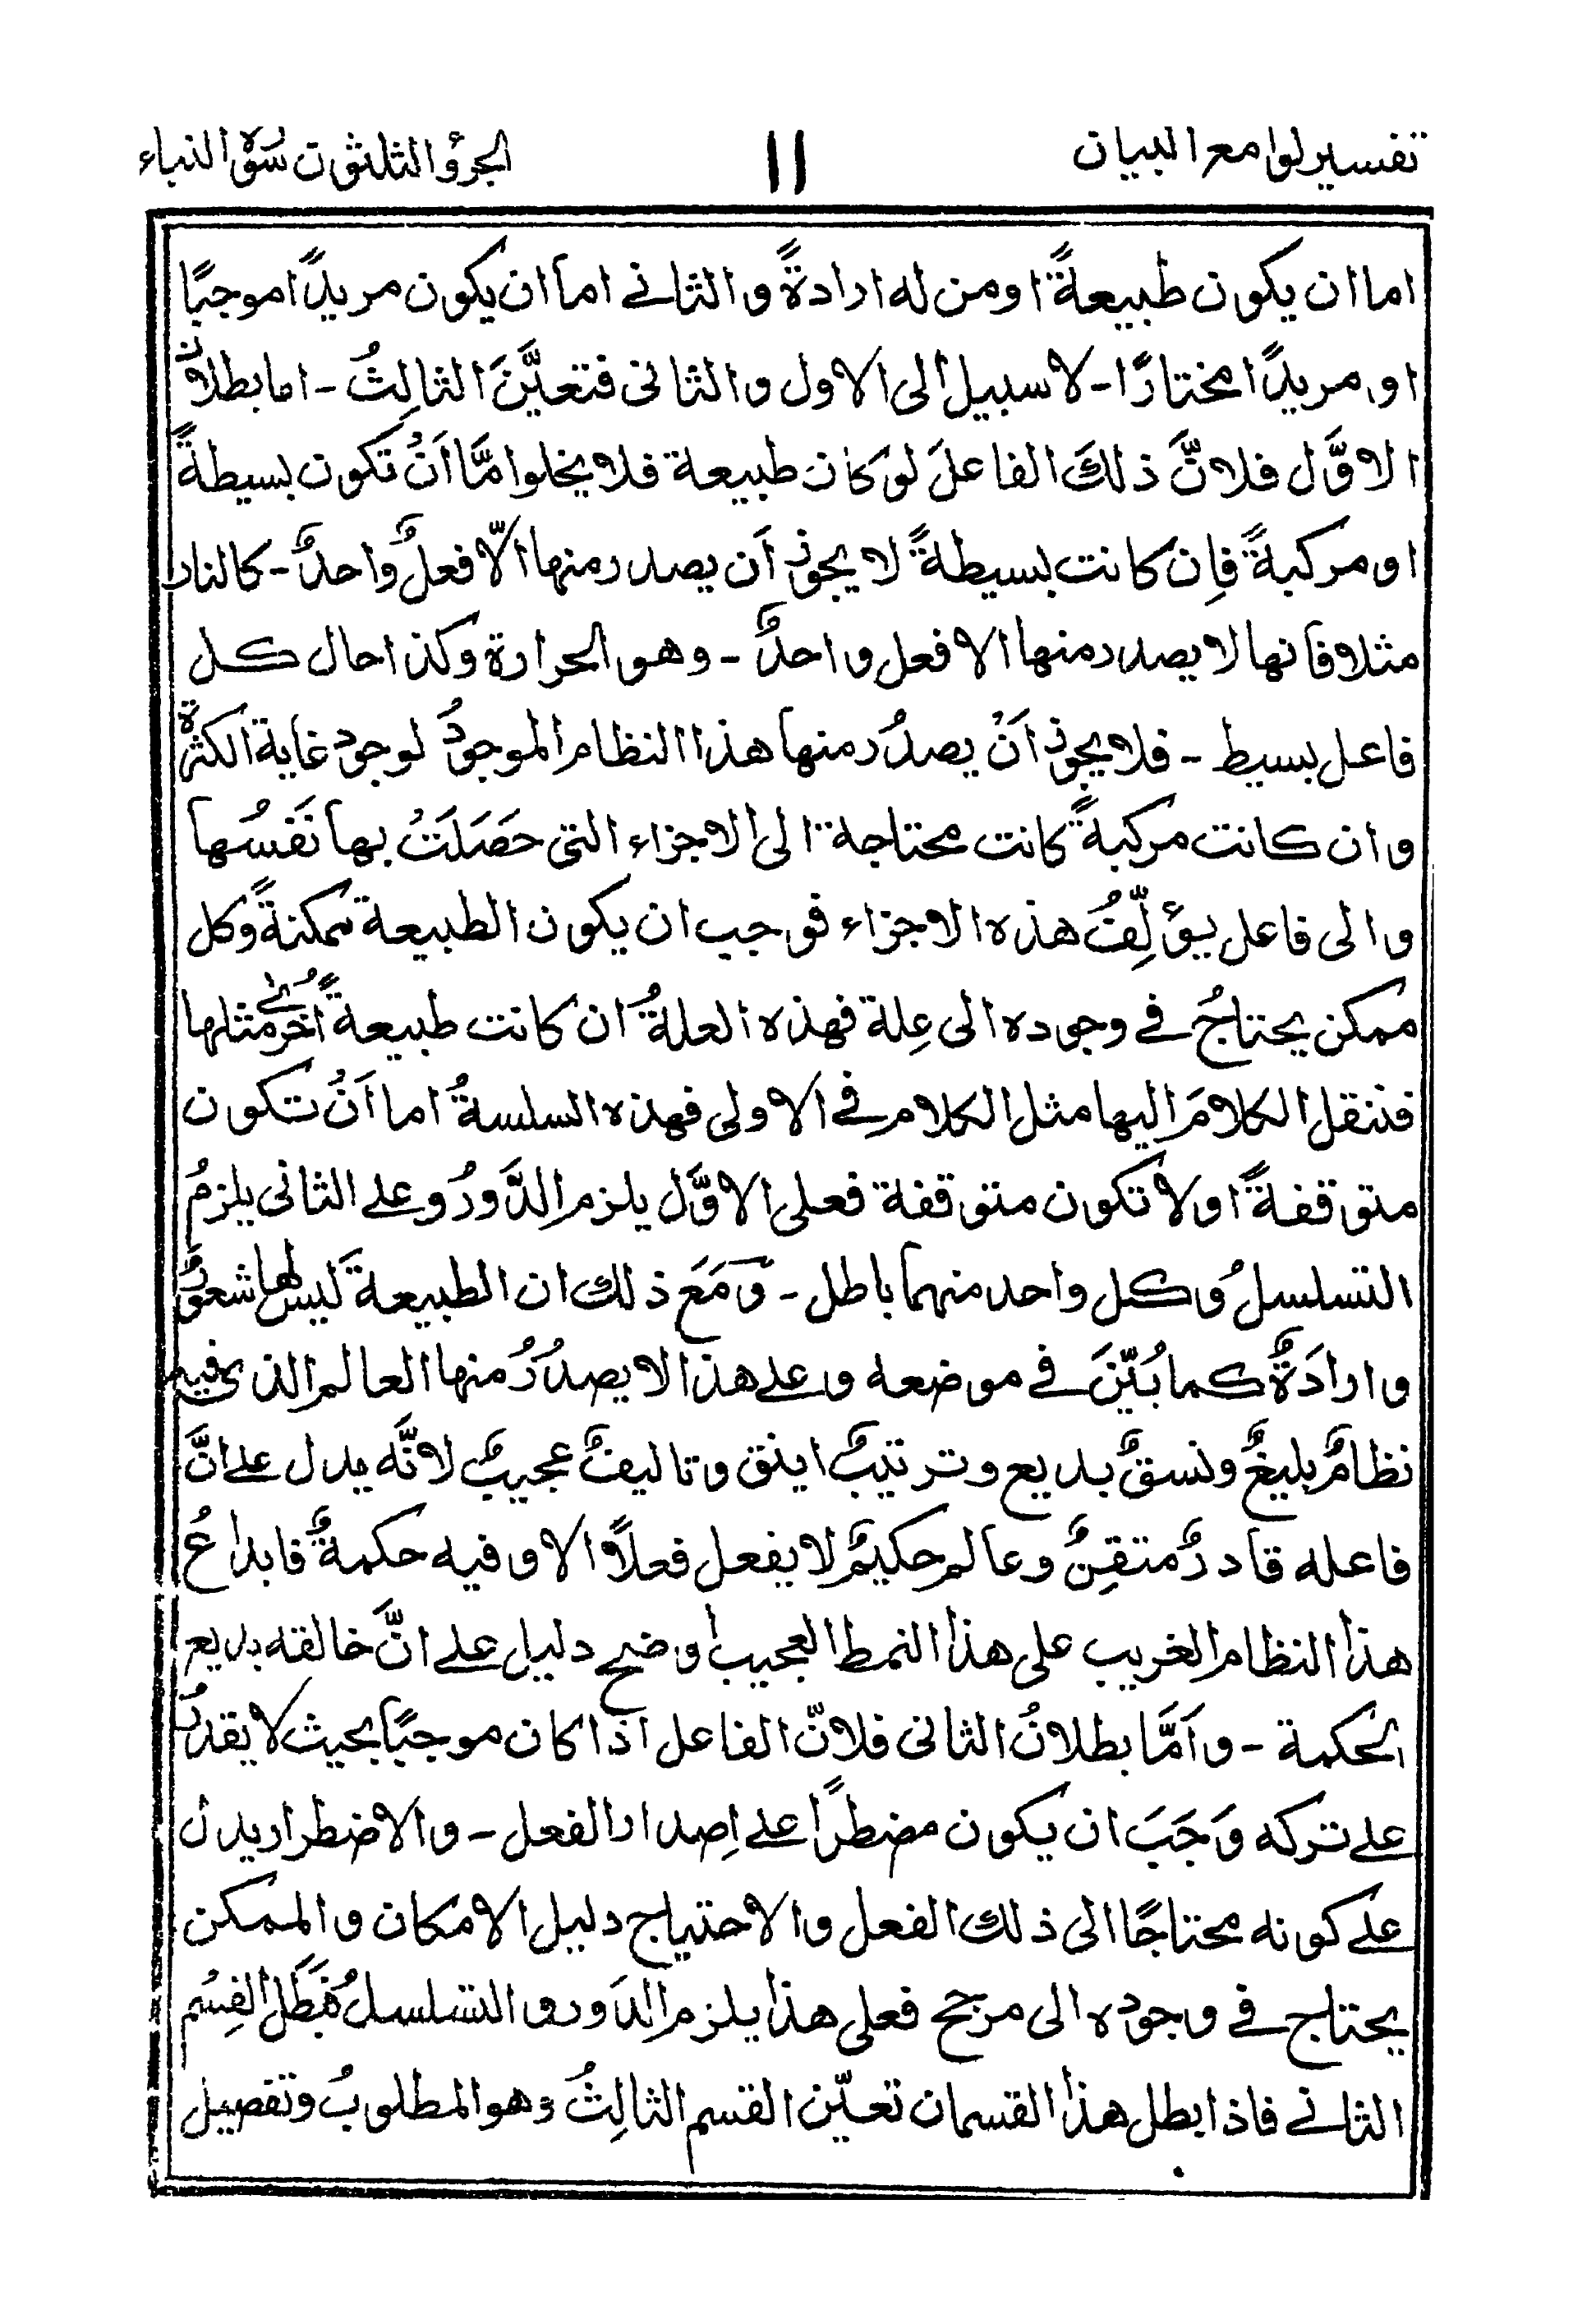 تفسير لوامع البيان ١١ الجزؤ الثلثون سورة النباء
اما ان يكون طبيعةً او من له ارادةً و الثاني اما ان يكون مريدًا موجبًا
او مريدًا مختارًا - لا سبيل الى الاول و الثاني فتعيَّنَ الثالِثُ - اما بطلان
الاوَّل فلانَّ ذلكَ الفاعلَ لو كان طبيعة فلا يخلوا مَّا اَنُ تكون بسيطةً
او مركبةً فاِن كانت بسيطةً لا يجوز اَن يصدر منها الّا فعلٌ واحدٌ - كالنار
مثلا فانها لا يصدر منها الا فعل واحدٌ - وهو الحرارة وكذا حال كل
فاعل بسيط - فلا يجوز اَنْ يصدُر منها هذا النظام الموجودُ لوجود غاية الكثرة
وان كانت مركبةً كانت محتاجة الى الاجزاء التى حَصَلَتُ بها نَفسُها
و الى فاعل يؤلِّفُ هذه الاجزاء فوجب ان يكون الطبيعة ممكنةً وكل
ممكن يحتاجُ في وجوده الى عِلة فهذه العلةُ ان كانت طبيعةً اُخرٰے مثلها
فننقل الكلامَ اليها مثل الكلام في الاولى فهذه السلسةُ اما اَنُ تكون
متوقفةً او لا تكون متوقفة فعلى الاوَّل يلزم الدَّورُ و على الثانى يلزمُ
التسلسلُ وكل واحد منهما باطل - وَمَعَ ذلك ان الطبيعة لَيس لها شعورٌ
و ارادَةٌ كما بُيّنَ في موضعه و على هذا لا يصدُرُ منها العالم الذى فيه
نظامٌ بليغٌ ونسقٌ بديع و ترتيبٌ اينق و تاليفٌ عجيبٌ لانَّه يدل على انَّ
فاعله قادرٌ متقِنٌ وعالم حكيمٌ لا يفعل فعلًا الا و فيه حكمةٌ فابداعُ
هذا النظام الغريب على هذا النمط العجيب اوضح دليل على انَّ خالقه بديع
الحكمة - و اَمَّا بطلانُ الثانى فلانّ الفاعل اذا كان موجبًا بحيث لا يقدرُ
على تركه وَجَبَ ان يكون مضطرًا على اِصدار الفعل - و الاضطرار يدل
على كونه محتاجًا الى ذلك الفعل و الاحتياج دليل الامكان و الممكن
يحتاج في وجوده الى مرجح فعلى هذا يلزم الدَور و التسلسلُ فبَطَل القِسُم
الثاني فاذا بطل هذا القسمان تعيّن القسم الثالِثُ وهو المطلوبُ وتفصيل